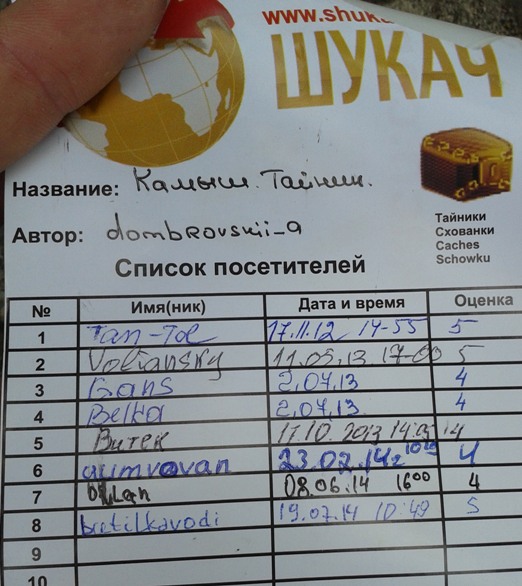 www.shuka
ШУКАЧ
Название: Камыш. Тайник.
Автор: dombrovskii_a
Тайники
Схованки
Caches
Schowku
Список посетителей
№ Имя(ник) Дата и время Оценка
1 Tan-Tol 17.11.12 14-55 5
2 Voliansky 11.05.13 17-00 5
3 Gans 2.07.13 4
4 Belka 2.07.13 4
5 Витек 17.10.2013 14:05 4
6 23.02.14 4
7 08.06.14 16 00 4
8 butilkavodi 19.07.14 10:49 5
9
10